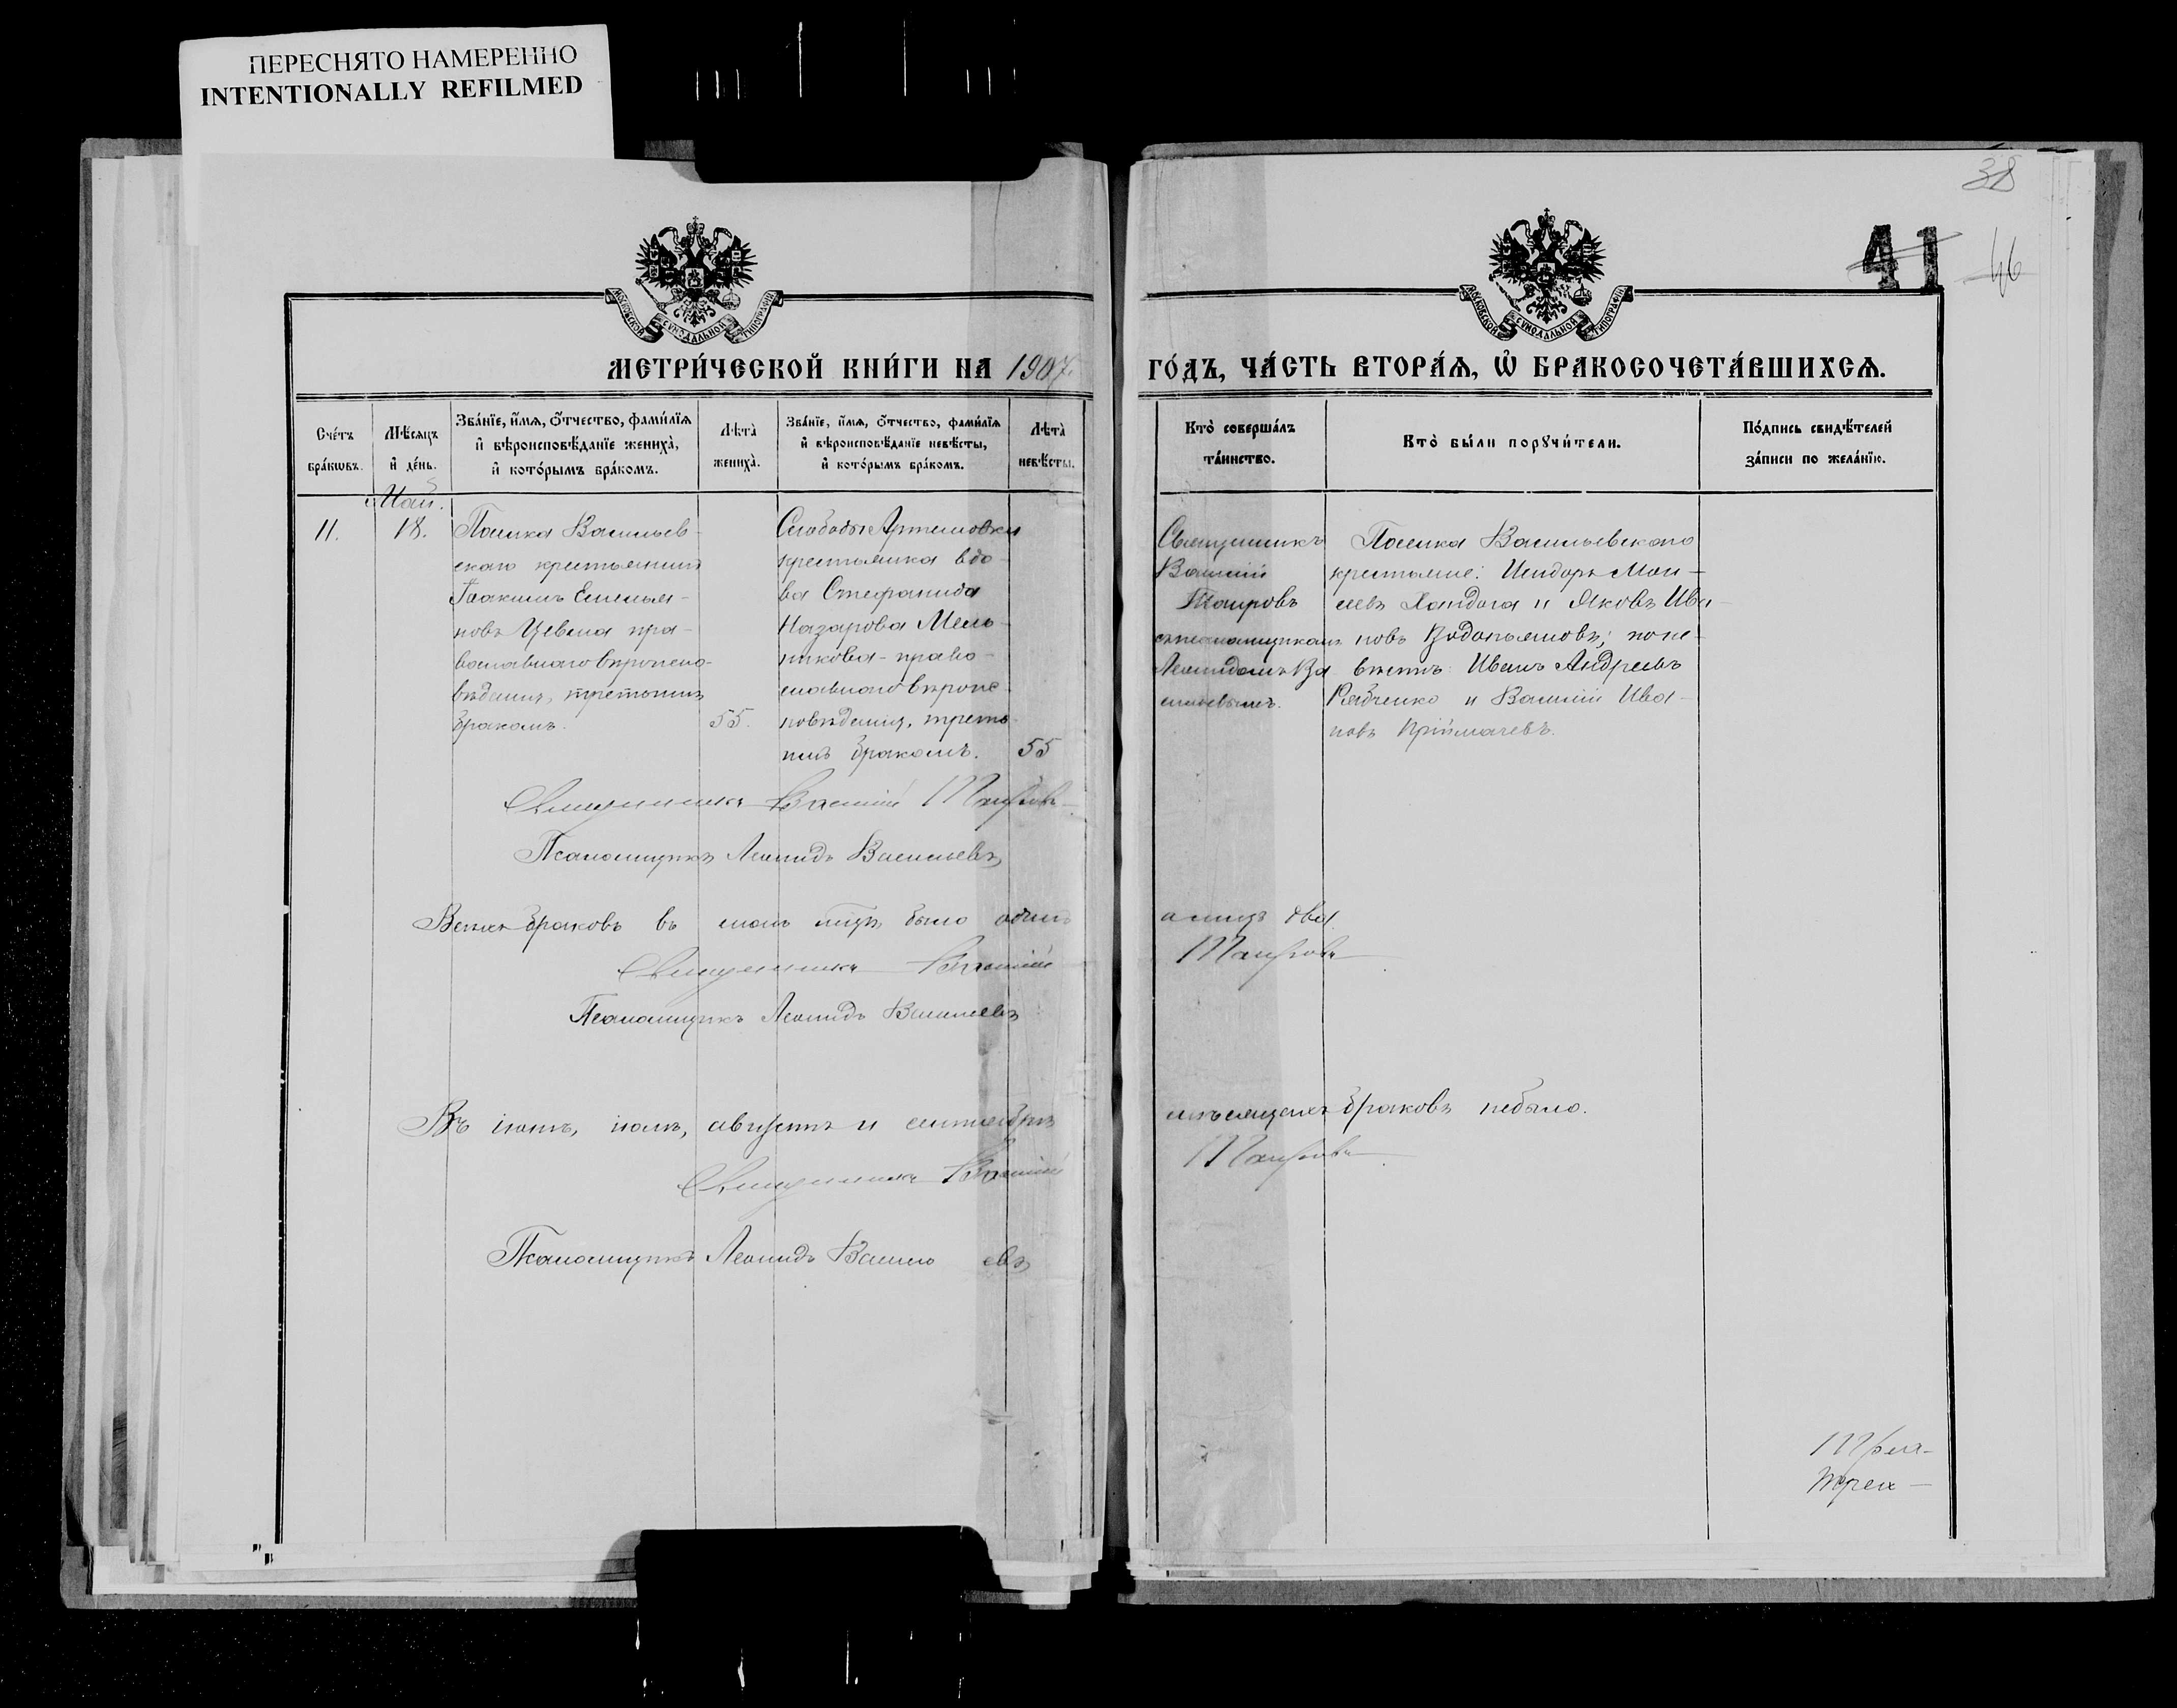 ПЕРЕСНЯТО НАМЕРЕННО
INTENTIONALLY REFILMED
38
41
46
МОСКОВСКОЙ СУНОДАЛЬНОЙ ТИПОГРАФІИ
МОСКОВСКОЙ СУНОДАЛЬНОЙ ТИПОГРАФІИ
МЕТРИ́ЧЕСКОЙ КНИ́ГИ НА 1907
ГО́ДЪ, ЧА́СТЬ ВТОРА́Ѧ, Ѡ҆ БРАКОСОЧЕТА́ВШИХСѦ.
Сче́тъ
бра́кѡвъ.
Мѣ́сяцъ
и҆ де́нь.
Зва́нїе, и҆́мѧ, ѻ҆́тчество, фами́лїѧ
и҆ вѣроисповѣ́данїе женихà,
и҆ кото́рымъ бра́комъ.
Лѣтà
женихà.
Зва́нїе, и҆́мѧ, ѻ҆́тчество, фами́лїѧ
и҆ вѣроисповѣ́данїе невѣ́сты,
и҆ кото́рымъ бра́комъ.
Лѣтà
невѣ́сты.
Кто̀ соверша́лъ
та́инство.
Кто̀ бы́ли порꙋчи́тели.
По́дпись свидѣ́телей
за́писи по жела́нїю.
Май.
11.
18.
Поселка Васильев-
скаго крестьянинъ
Іоакимъ Емельян-
новъ Цевма пра-
вославнаго вѣроиспо-
вѣданія, третьимъ
бракомъ.
55.
Слободы Артемовки
крестьянка вдо-
ва Стефанида
Назарова Мель-
никова - право-
славнаго вѣроис-
повѣданія, треть-
имъ бракомъ.
55
Священникъ
Василій
Таировъ
съ псаломщикомъ
Леонидомъ Ва
сильевымъ.
Поселка Васильевскаго
крестьяне: Исидоръ Мои-
сеевъ Хандога и Яковъ Ива-
новъ Водопьяновъ; по не-
вѣстѣ: Иванъ Андреевъ
Рябченко и Василій Ива-
новъ Приймачевъ.
Священникъ Василій Таировъ
Псаломщикъ Леонидъ Васильевъ
Всѣхъ браковъ въ маѣ мцѣ было одинъ
надцать
Священникъ Василій Таировъ
Псаломщикъ Леонидъ Васильевъ
Въ іюнѣ, іюлѣ, августѣ и сентябрѣ
мѣсяцахъ браковъ небыло.
Священникъ Василій Таировъ
Псаломщикъ Леонидъ Василь евъ